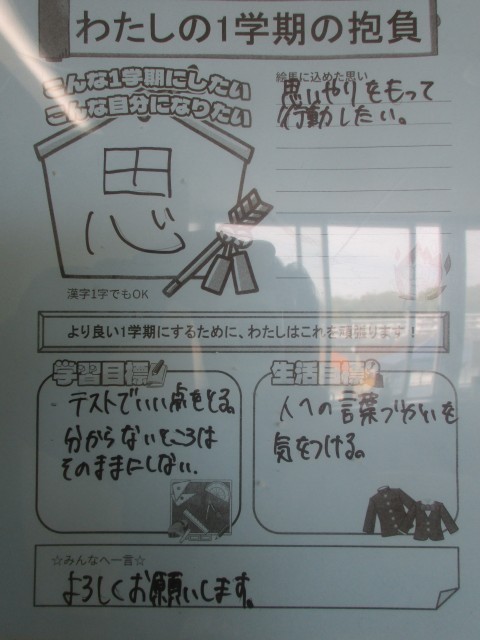 わたしの1学期の抱負
こんな1学期にしたい
こんな自分になりたい
絵馬に込めた思い
思いやりをもって
行動したい。
思
漢字1字でもOK
より良い1学期にするために、わたしはこれを頑張ります！
学習目標
テストでいい点をとる。
分からないところは
そのままにしない.
生活目標
人への言葉づかいを
気をつける。
☆みんなへ一言☆
よろしくお願いします。